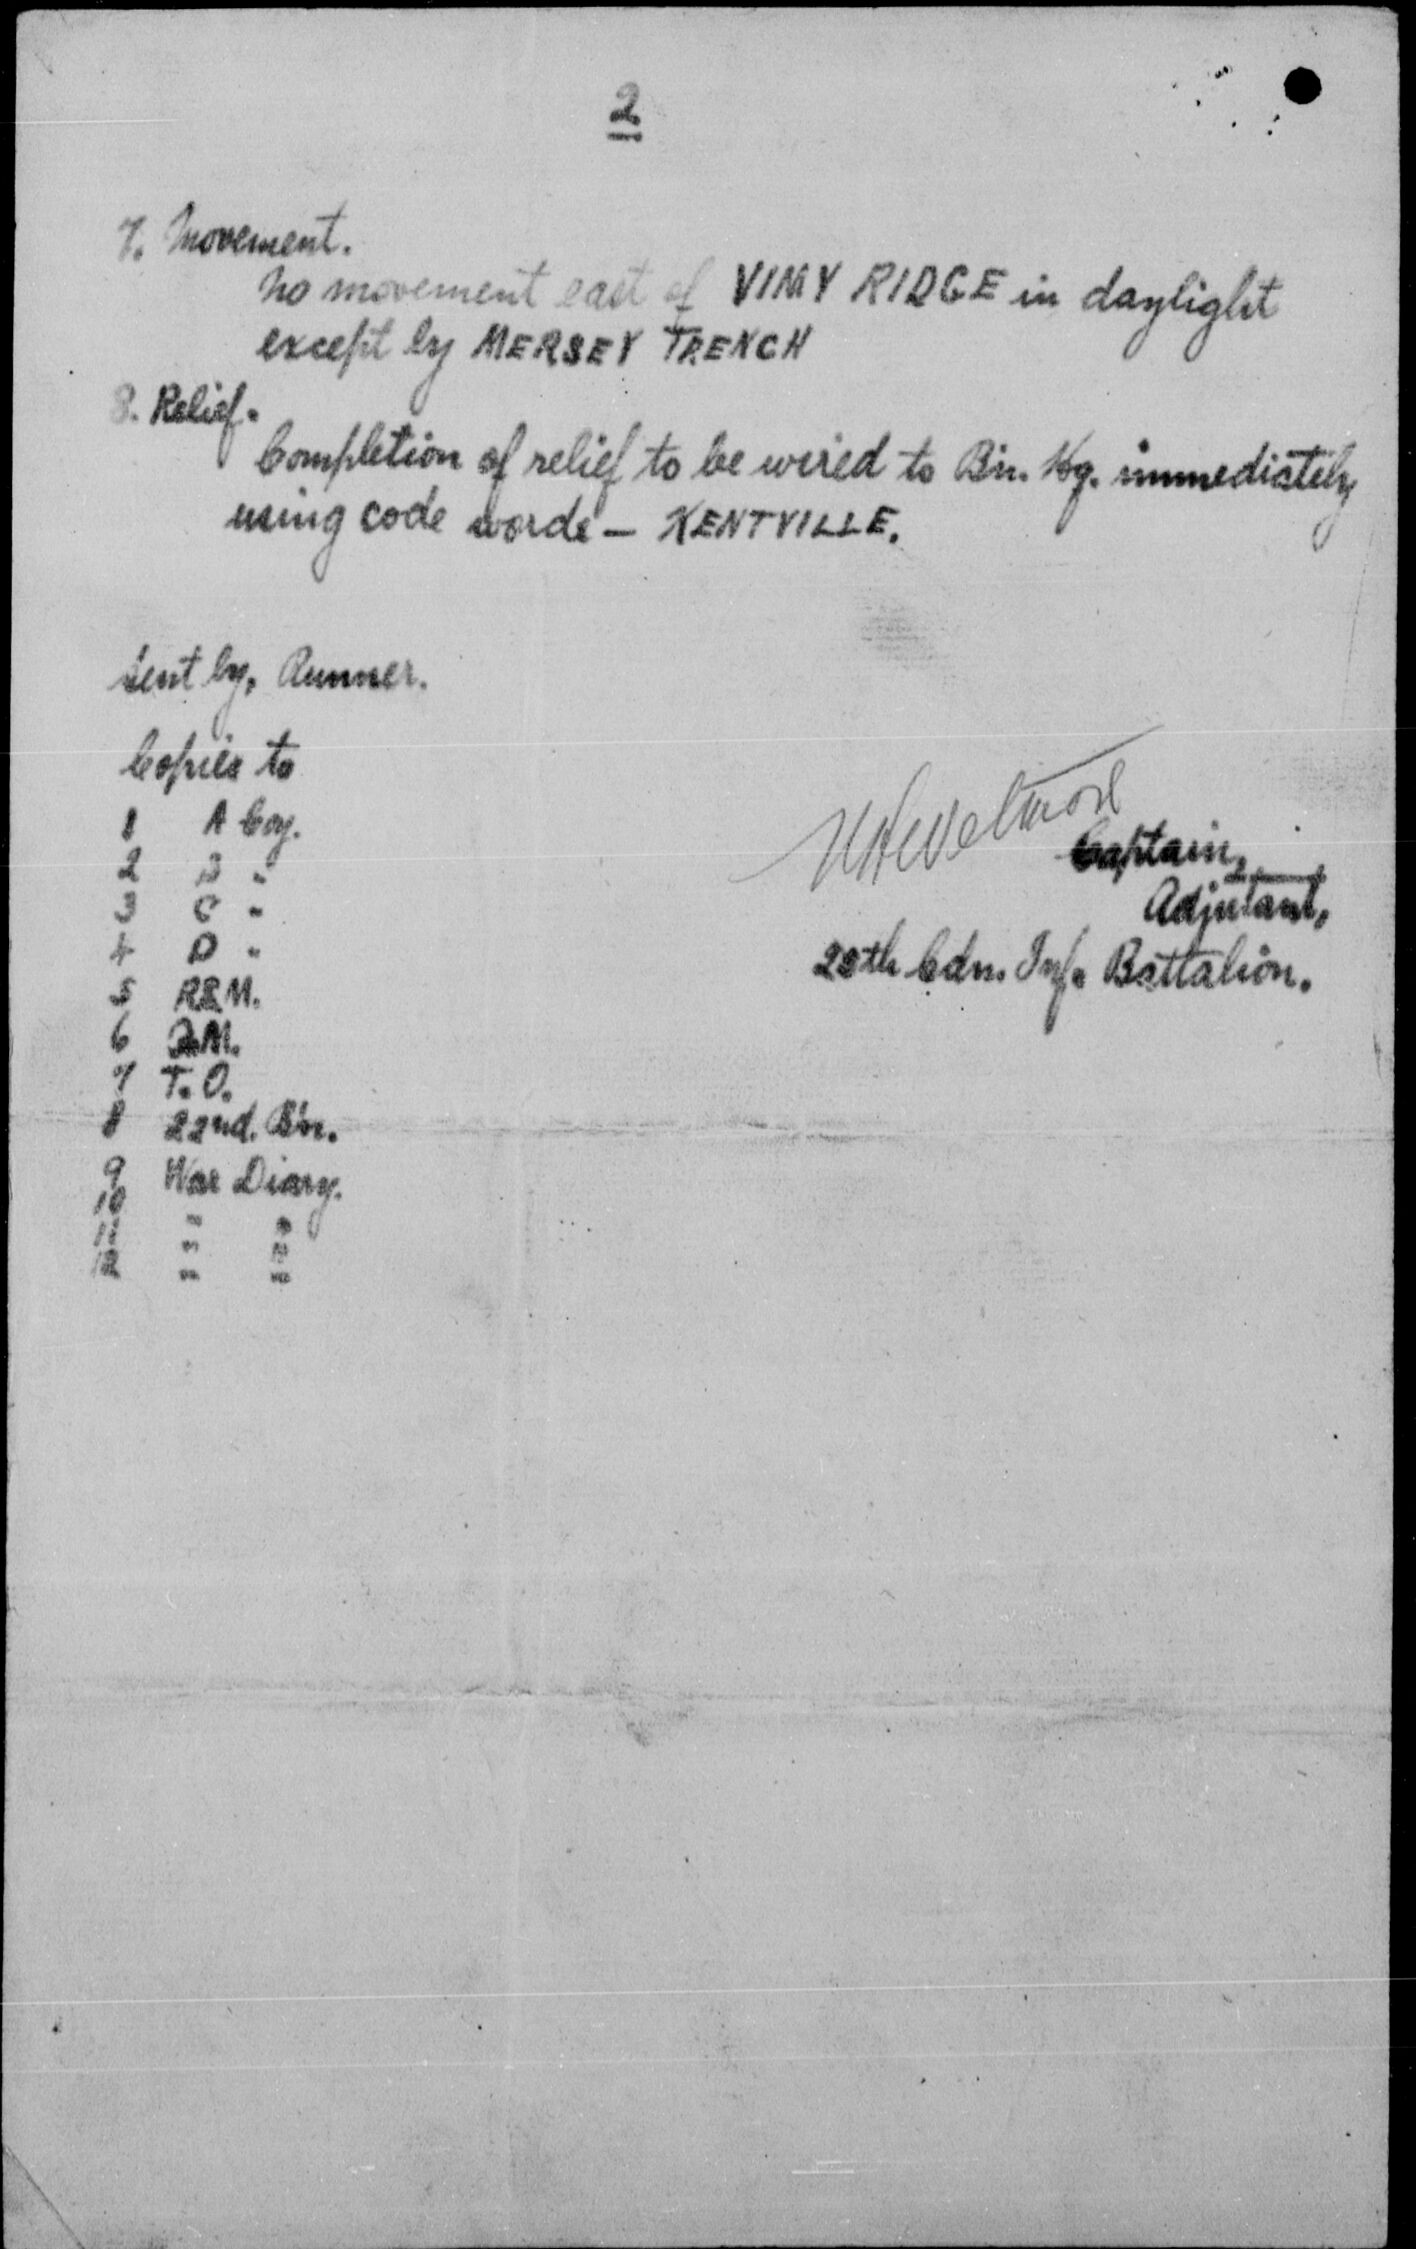 2
7. Movement.
No movement east of VIMY RIDGE in daylight
except by MERSEY TRENCH
8. Relief.
Completion of relief to be wired to Bn. Hq. immediately
using code words – KENTVILLE.
Sent by, Runner.
Copies to
1 A Coy.
2 B "
3 C "
4 D "
5 R.S.M.
6 Q.M.
7 T.O.
8 22nd. Bn.
9 War Diary.
10 " "
11 " "
12 " "
Captain,
Adjutant,
Cdn. Inf. Battalion.